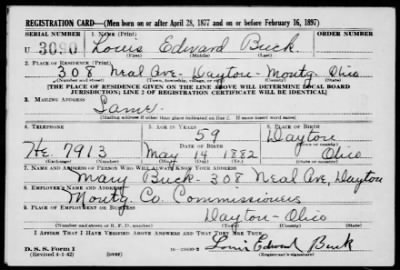 REGISTRATION CARD—(Men born on or after April 28, 1877 and on or before February 16, 1897)
SERIAL NUMBER 1. NAME (Print) ORDER NUMBER
U 3090 Louis Edward Buck
2. PLACE OF RESIDENCE (Print)
308 Neal Ave - Dayton - Montg. Ohio
[THE PLACE OF RESIDENCE GIVEN ON THE LINE ABOVE WILL DETERMINE LOCAL BOARD
JURISDICTION; LINE 2 OF REGISTRATION CERTIFICATE WILL BE IDENTICAL]
3. MAILING ADDRESS
Same
(Mailing address if other than place indicated on line 2. If same insert word same)
4. TELEPHONE 5. AGE IN YEARS 6. PLACE OF BIRTH
59 Dayton
DATE OF BIRTH
He. 7913 May 14 1882 Ohio
(Exchange) (Number) (Mo.) (Day) (Yr.) (State or country)
7. NAME AND ADDRESS OF PERSON WHO WILL ALWAYS KNOW YOUR ADDRESS
Mary Buck - 308 Neal Ave, Dayton
8. EMPLOYER'S NAME AND ADDRESS
Montg. Co. Commissioners
9. PLACE OF EMPLOYMENT OR BUSINESS
Dayton - Ohio
(Number and street or R. F. D. number) (Town) (County) (State)
I AFFIRM THAT I HAVE VERIFIED ABOVE ANSWERS AND THAT THEY ARE TRUE.
D. S. S. Form 1
(Revised 4-1-42) (over) Louis Edward Buck
(Registrant's signature)